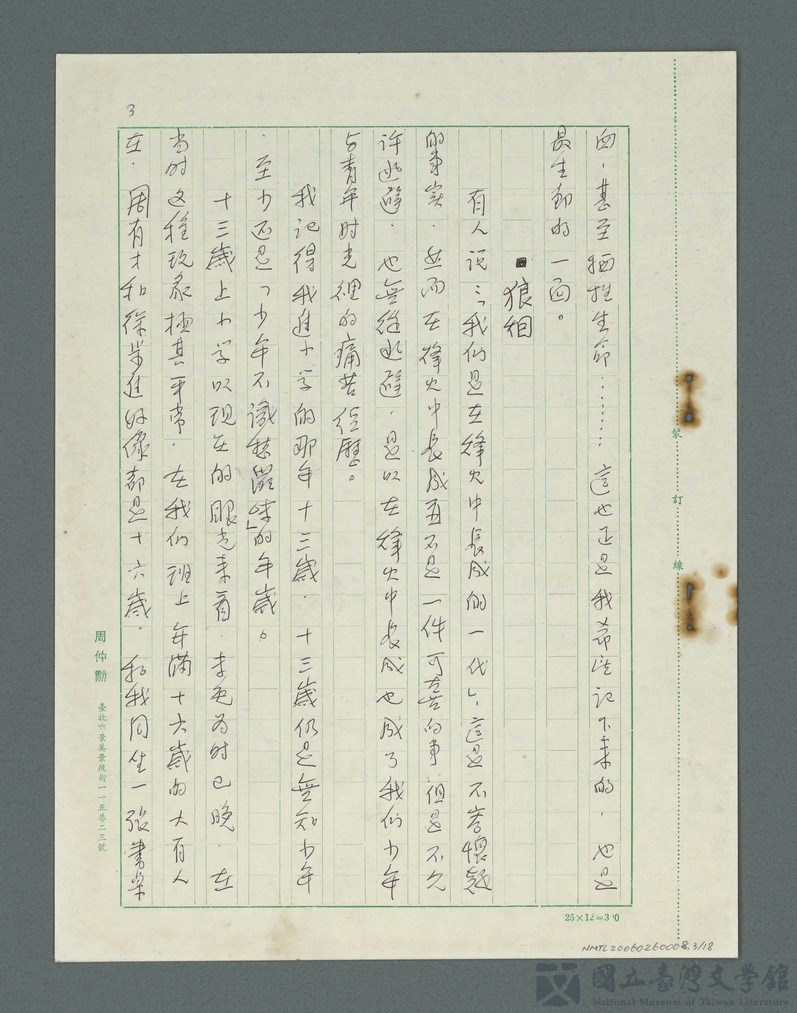 3
面，甚至犧牲生命………這也正是我希望記下來的，也是
最生動的一面。
■狼狽
有人說：「我們是在烽火中長成的一代」，這是不容懷疑
的事實，然而在烽火中長成並不是一件可喜的事，但是不允
許逃避，也無從逃避，是以在烽火中長成也成了我們少年
与青年时光裡的痛苦經歷。
我记得我進小学的那年十三歲，十三歲仍是無知少年
，至少还是「少年不識愁滋味」的年歲。
十三歲上小学以現在的眼光來看，未免為时已晚，在
当时这種現象極其平常，在我们班上年滿十六歲的大有人
在，周有才和徐 進好像都是十六歲，和我同坐一張書桌
裝訂線
25×12=300
周仲勳 臺北 景美景後街一一五巷二三號
NMTL20060260008.3/18
國立臺灣文學館
National Museum of Taiwan Literature